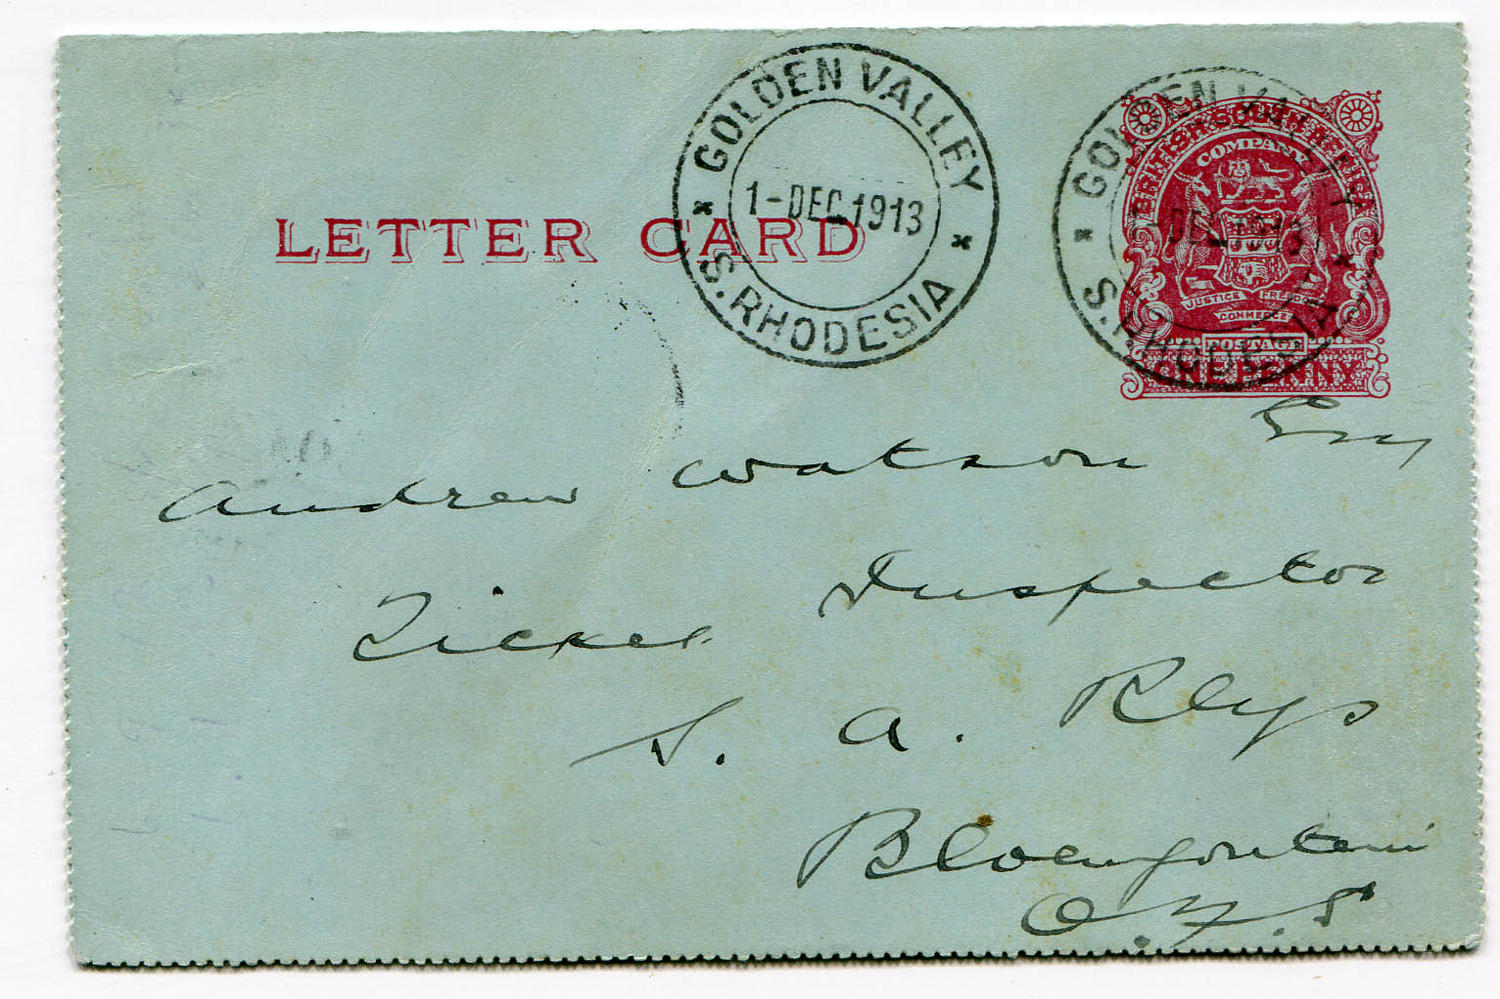 GOLDEN VALLEY
1-DEC 1913
S. RHODESIA
GOLDEN VALLEY
DEC 1913
S. RHODESIA
BRITISH SOUTH AFRICA
COMPANY
JUSTICE FREEDOM
COMMERCE
POSTAGE
ONE PENNY
LETTER CARD
Andrew Watson Esq
Ticket Inspector
S. A. Rlys
Bloemfontein
O.F.S